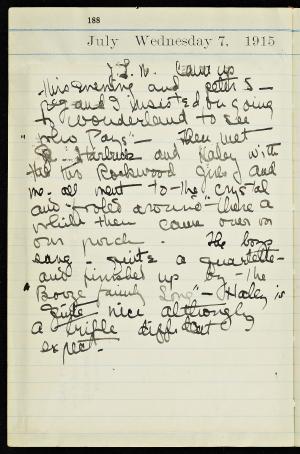 188
July Wednesday 7, 1915
J. L. W. Came up
this evening and
Peg and I insisted on going
to Wonderland to see
"Who Pays"- Then met
Starbuck and Haley with
the two Rockwood girls and
we all went to the Crystal
and "fooled around" there a
while then came over on
our porch. The boys
sang - quite a quartette -
and finished up by - the
"Booze Family Song" - Haley is
quite nice although
a trifle diffident I
expect -